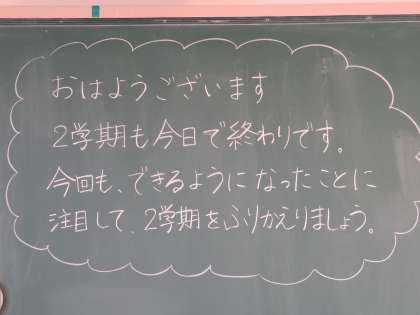 おはようございます
2学期も今日で終わりです。
今回も、できるようになったことに
注目して、2学期をふりかえりましょう。